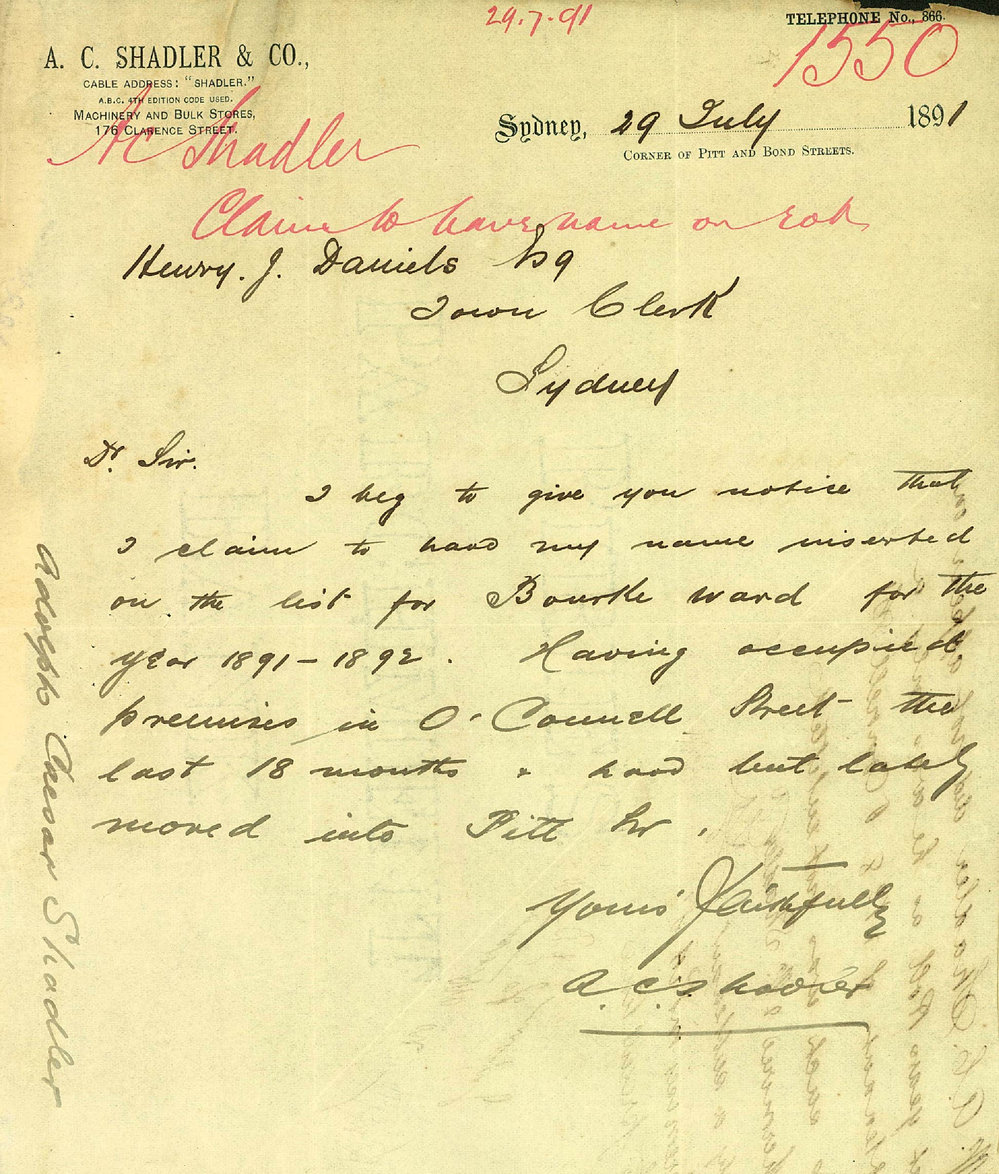 29.7.91
TELEPHONE No., 866.
1550
A. C. SHADLER & CO.,
CABLE ADDRESS: "SHADLER."
A.B.C. 4TH EDITION CODE USED.
MACHINERY AND BULK STORES,
176 CLARENCE STREET.
Sydney, 29 July 1891
CORNER OF PITT AND BOND STREETS.
AC Shadler
Claim to have name on roll
Henry. J. Daniels Esq
Town Clerk
Sydney
Dr Sir.
I beg to give you notice that
I claim to have my name inserted
on the list for Bourke ward for the
year 1891-1892. Having occupied
premises in O'Connell Street the
last 18 months & have but lately
moved into Pitt Str.
Yours faithfully
A.C. Shadler
Adolph Caesar Shadler